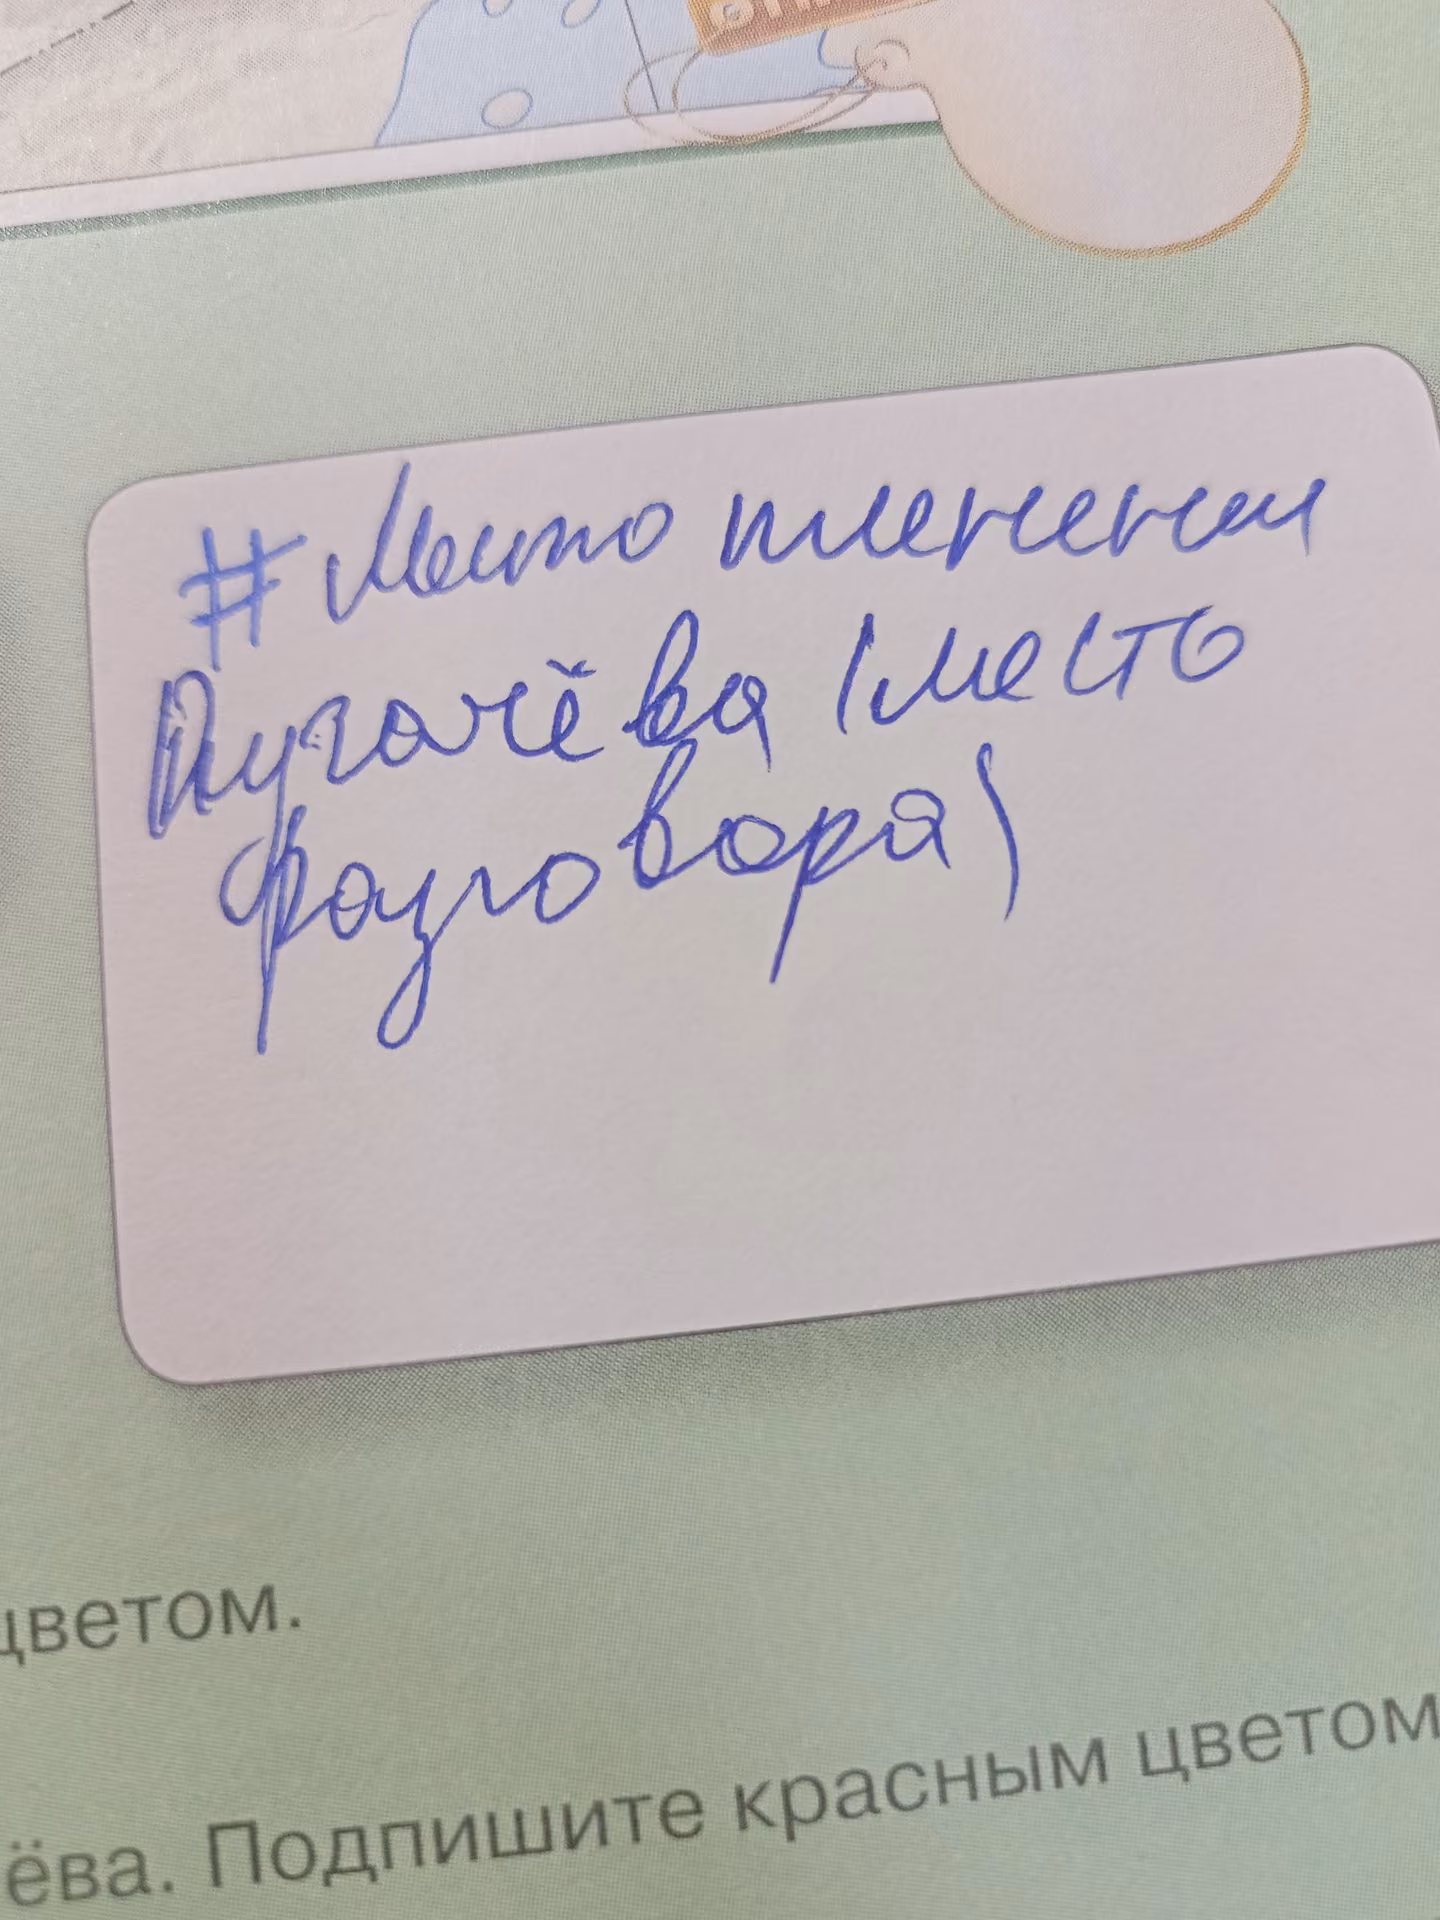 # Место пленения
Пугачёва (место
разговора)
цветом.
ёва. Подпишите красным цветом